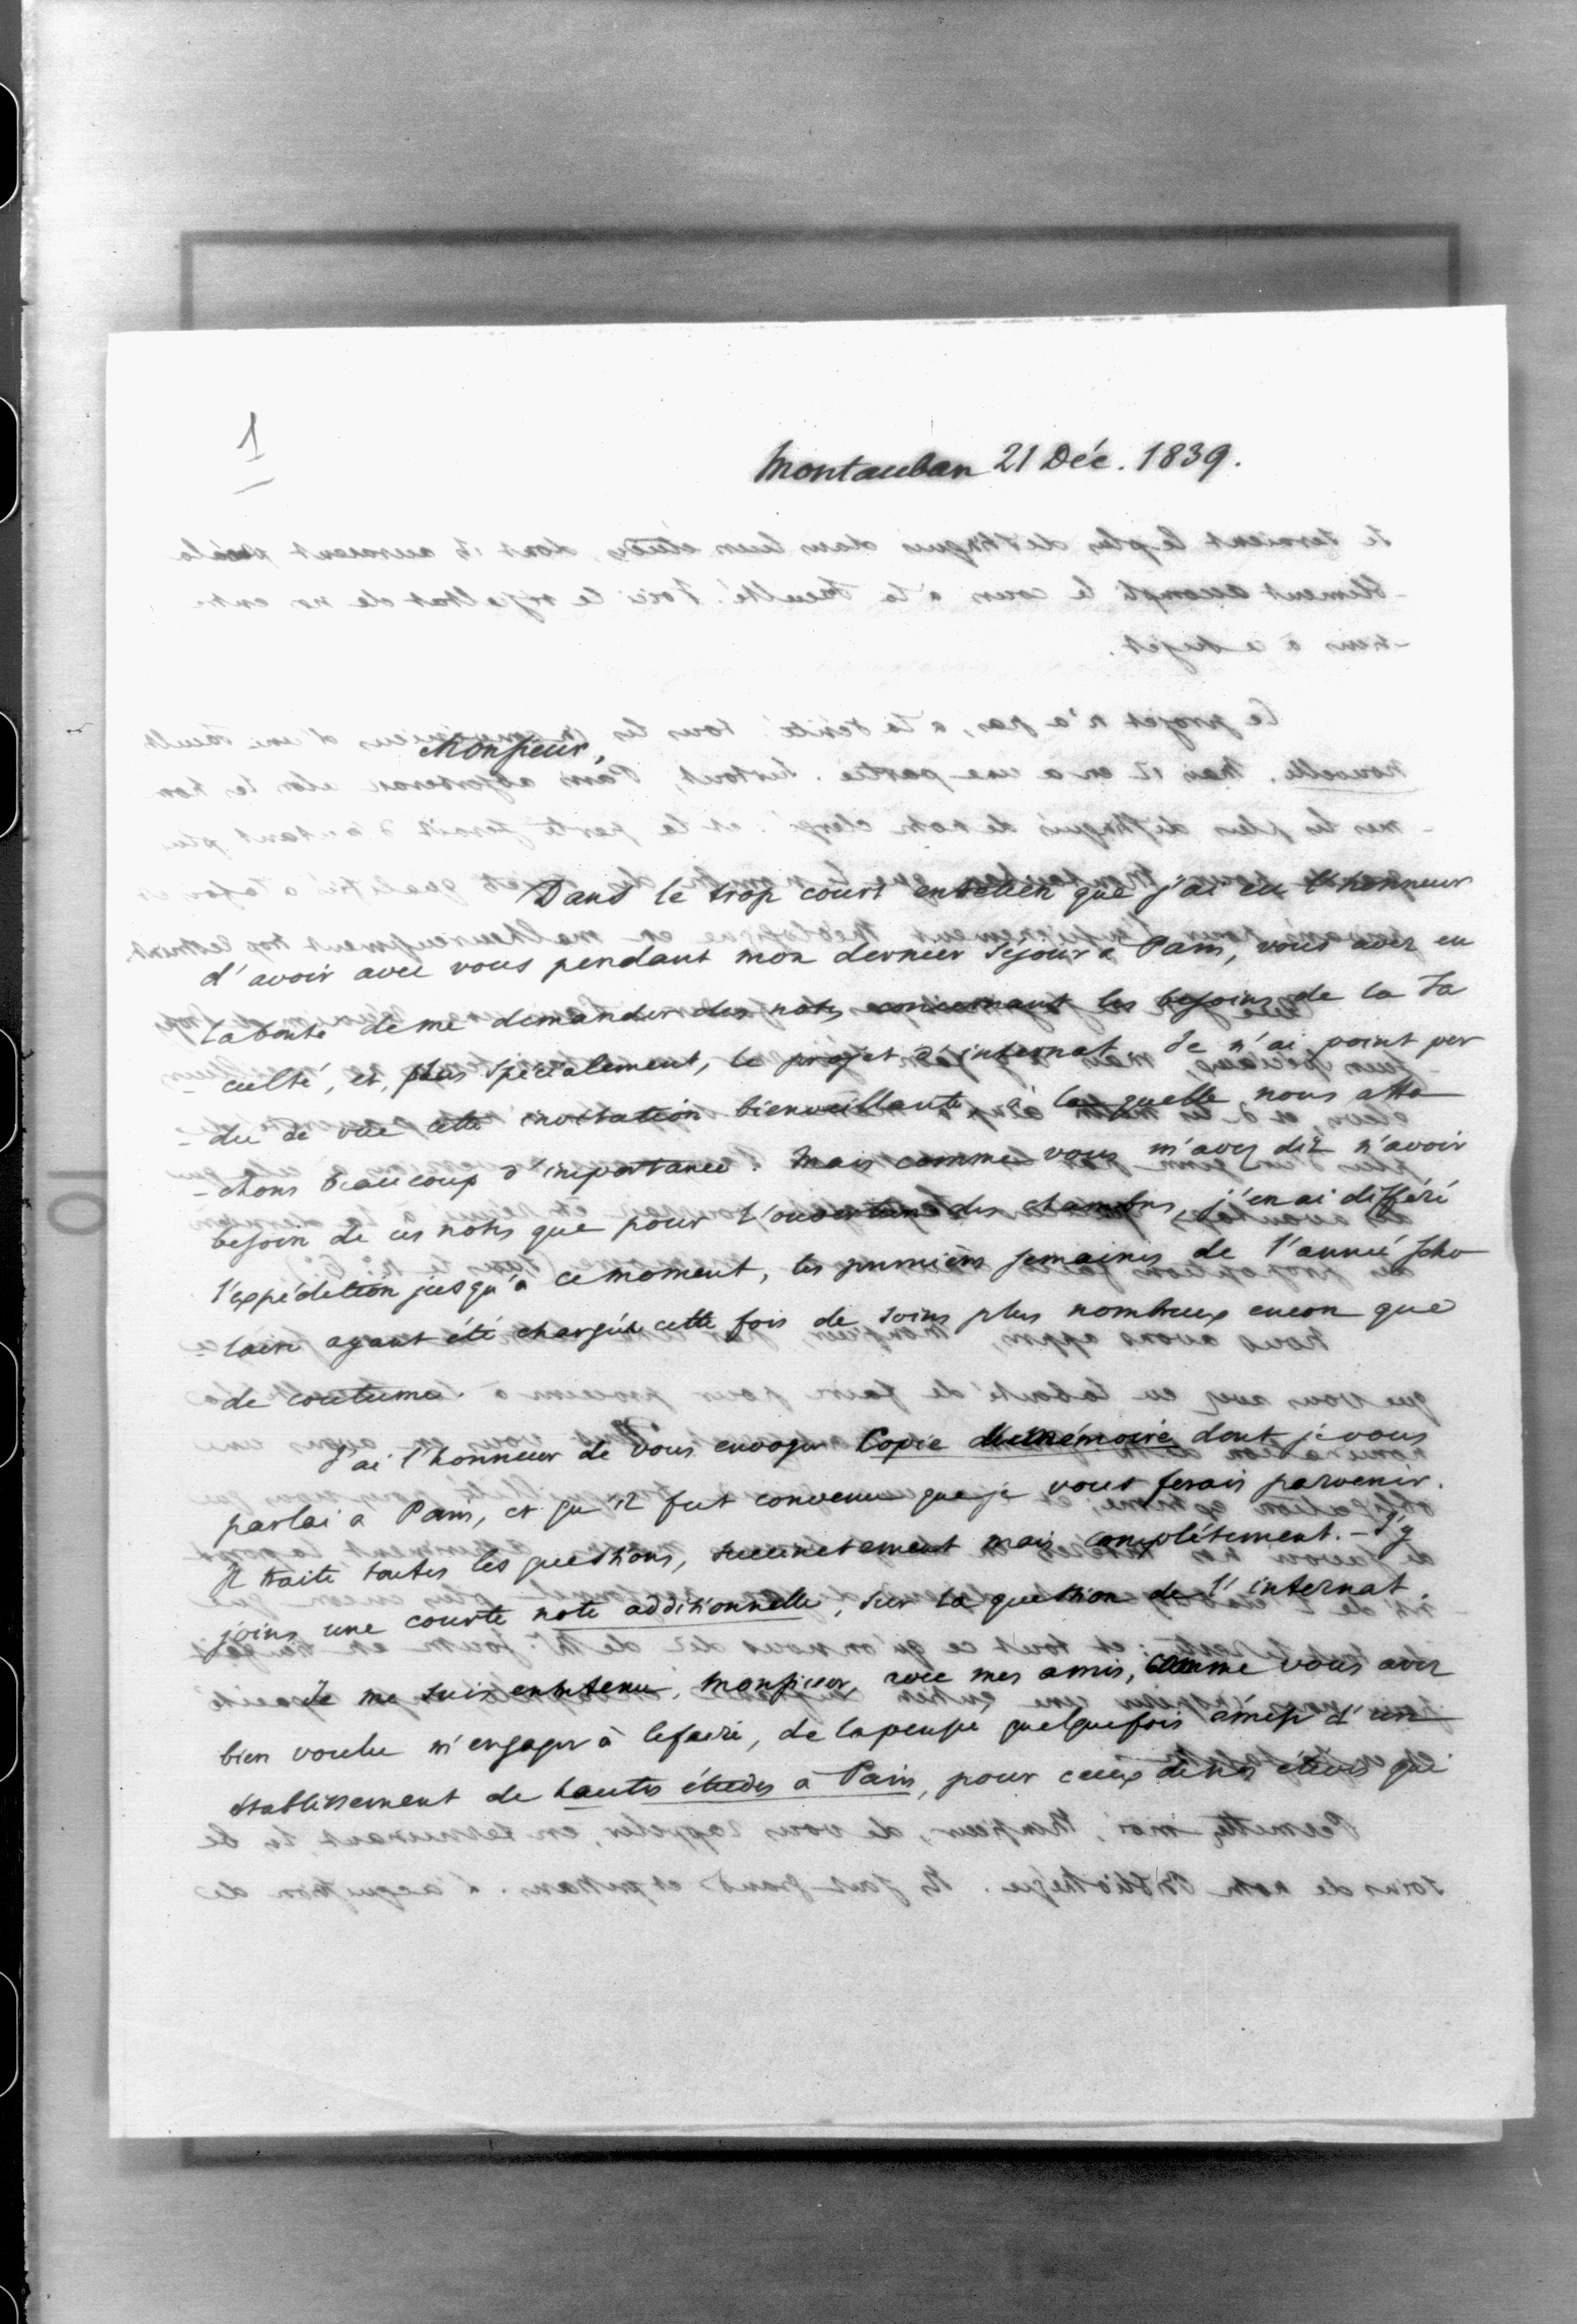 1
Montauban 21 Déc. 1839.
Monsieur,
Dans le trop court entretien que j'ai eu l'honneur
d'avoir avec vous pendant mon dernier séjour à Paris, vous avez eu
la bonté de me demander des notes concernant les besoins de la Fa
-culté, et, plus spécialement, le projet d'internat. Je n'ai point per
du de vue cette invitation bienveillante, à laquelle nous atta
-chons beaucoup d'importance. Mais comme vous m'avez dit n'avoir
besoin de ces notes que pour l'ouverture des chambres, j'en ai différé
l'expédition jusqu'à ce moment, les premières semaines de l'année scho
laire ayant été chargées cette fois de soins plus nombreux encore que
de coutume.
J'ai l'honneur de vous envoyer Copie du mémoire dont je vous
parlai à Paris, et qu'il fut convenu que je vous ferais parvenir.
Il traite toutes les questions, succinctement mais complétement. - J'y
joins une courte note additionnelle, sur la question de l'internat.
Je me suis entretenu, Monsieur, avec mes amis, comme vous avez
bien voulu m'engager à le faire, de la pensée quelquefois émise d'un
établissement de hautes études à Paris, pour ceux de nos élèves qui